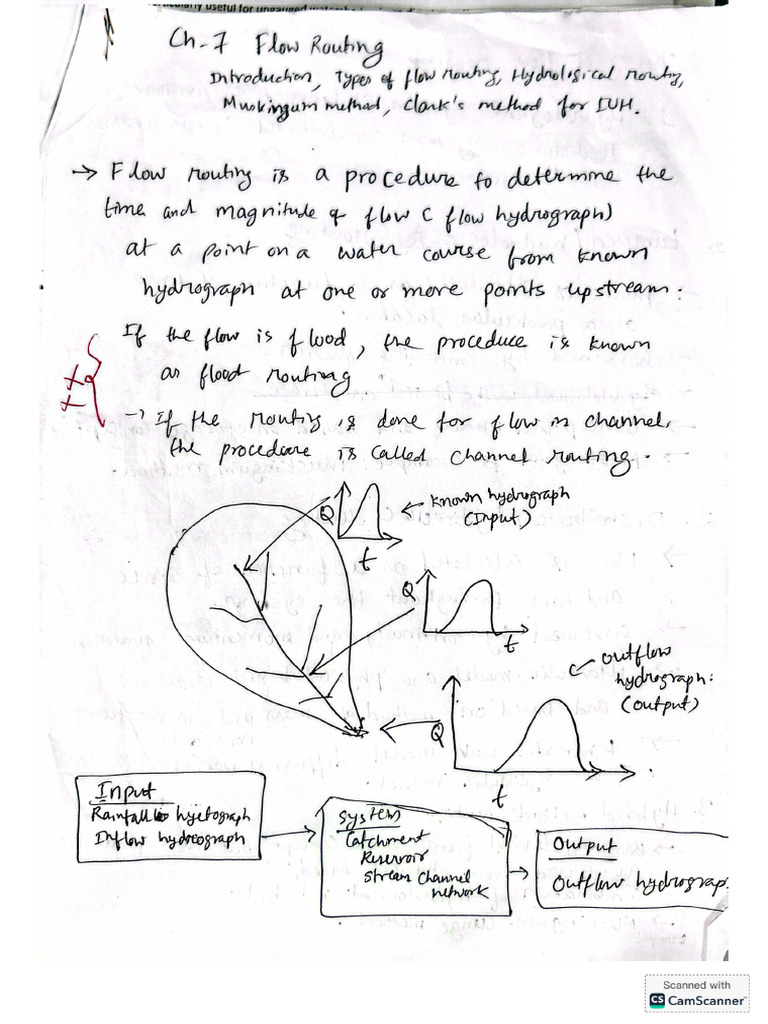 particularly useful for ungauged
Ch-7 Flow Routing
Introduction, Types of flow routing, Hydrological routing,
Muskingum method, Clark's method for IUH.
→ Flow routing is a procedure to determine the
time and magnitude of flow (flow hydrograph)
at a point on a water course from known
hydrograph at one or more points upstream.
If the flow is flood, the procedure is known
as flood routing
→ If the routing is done for flow in channel,
the procedure is called channel routing.
Q
t
← known hydrograph
(Input)
Q
t
Outflow
hydrograph:
(output)
Q
t
Input
Rainfall hyetograph
Inflow hydrograph
System
Catchment
Reservoir
Stream Channel
network
Output
Outflow hydrograp
Scanned with
CS CamScanner